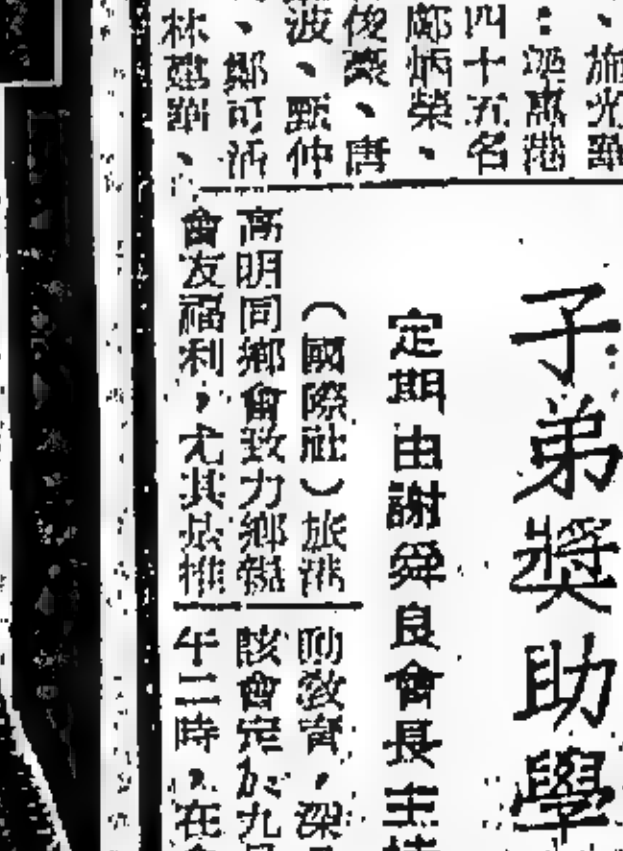 、施光
：旅港
四十五名
鄺炳榮、
俊、唐
波、甄仲
、鄭可
林建、
子弟獎助學
定期由謝舜良會長主持
（國際社）旅港
高明同鄉會致力鄉親
會友福利，尤其是推
助敎育，深
該會定於九
午二時，在